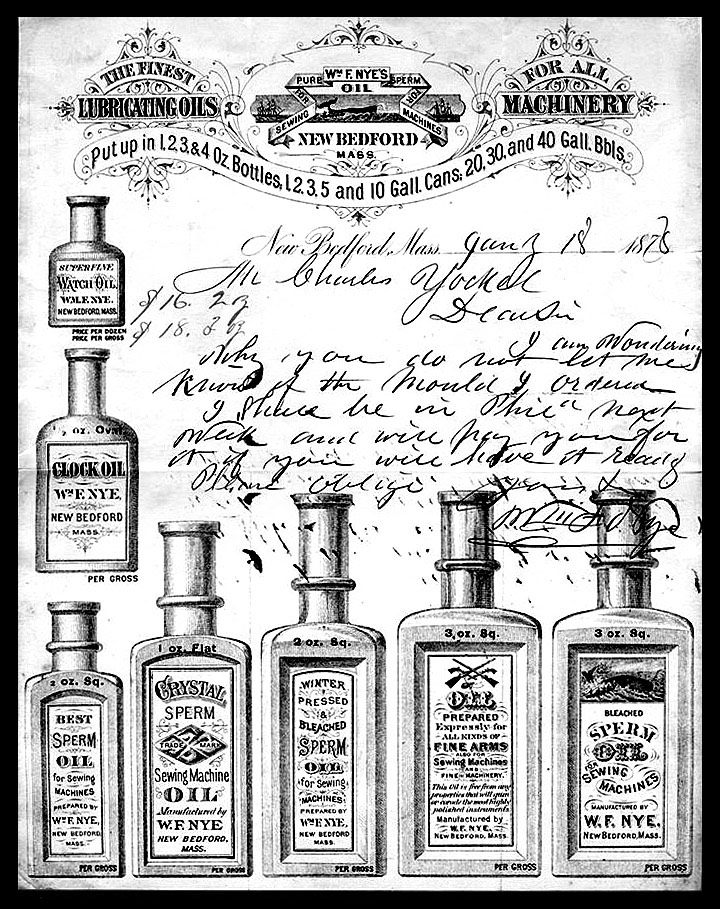 THE FINEST
LUBRICATING OILS
PURE WM F. NYE'S SPERM
OIL
FOR SEWING MACHINES FOR
NEW BEDFORD
MASS.
FOR ALL
MACHINERY
Put up in 1.2.3.& 4 Oz. Bottles, 1.2.3.5 and 10 Gall. Cans; 20, 30, and 40 Gall. Bbls.
New Bedford, Mass. Jany 18 1878
Mr Charles Yockel
Dear Sir
$16. 2 oz
$18. 3 oz
I am Wondering
Why you do not let me
Know if the Mould I ordered
I shall be in Phila next
Week and will pay you for
it if you will have it ready
Please oblige Yours &
Wm F. Nye
SUPERFINE
WATCH OIL,
W.M.F. NYE.
NEW BEDFORD, MASS.
PRICE PER DOZEN
PRICE PER GROSS
½ oz. Oval
CLOCK OIL
WM F. NYE,
NEW BEDFORD
MASS.
PER GROSS
2 oz. Sq.
BEST
SPERM
OIL
for Sewing
MACHINES
PREPARED BY
WM F. NYE,
NEW BEDFORD,
MASS.
PER GROSS
1 oz. Flat
CRYSTAL
SPERM
TRADE MARK
Sewing Machine
OIL
Manufactured by
W.F. NYE
NEW BEDFORD,
MASS.
PER GROSS
2 oz. Sq.
WINTER
PRESSED
&
BLEACHED
SPERM
OIL
for Sewing
MACHINES
PREPARED BY
WM F. NYE,
NEW BEDFORD
MASS.
PER GROSS
3 oz. Sq.
OIL
PREPARED
Expressly for
ALL KINDS OF
FINE ARMS
ALSO FOR
Sewing Machines
AND
FINE MACHINERY.
This Oil is free from any
properties that will gum
or corrode the most highly
polished instruments.
Manufactured by
W.F. NYE,
NEW BEDFORD, MASS.
PER GROSS
3 oz. Sq.
BLEACHED
SPERM
OIL
FOR
SEWING
MACHINES
MANUFACTURED BY
W.F. NYE,
NEW BEDFORD, MASS.
PER GROSS